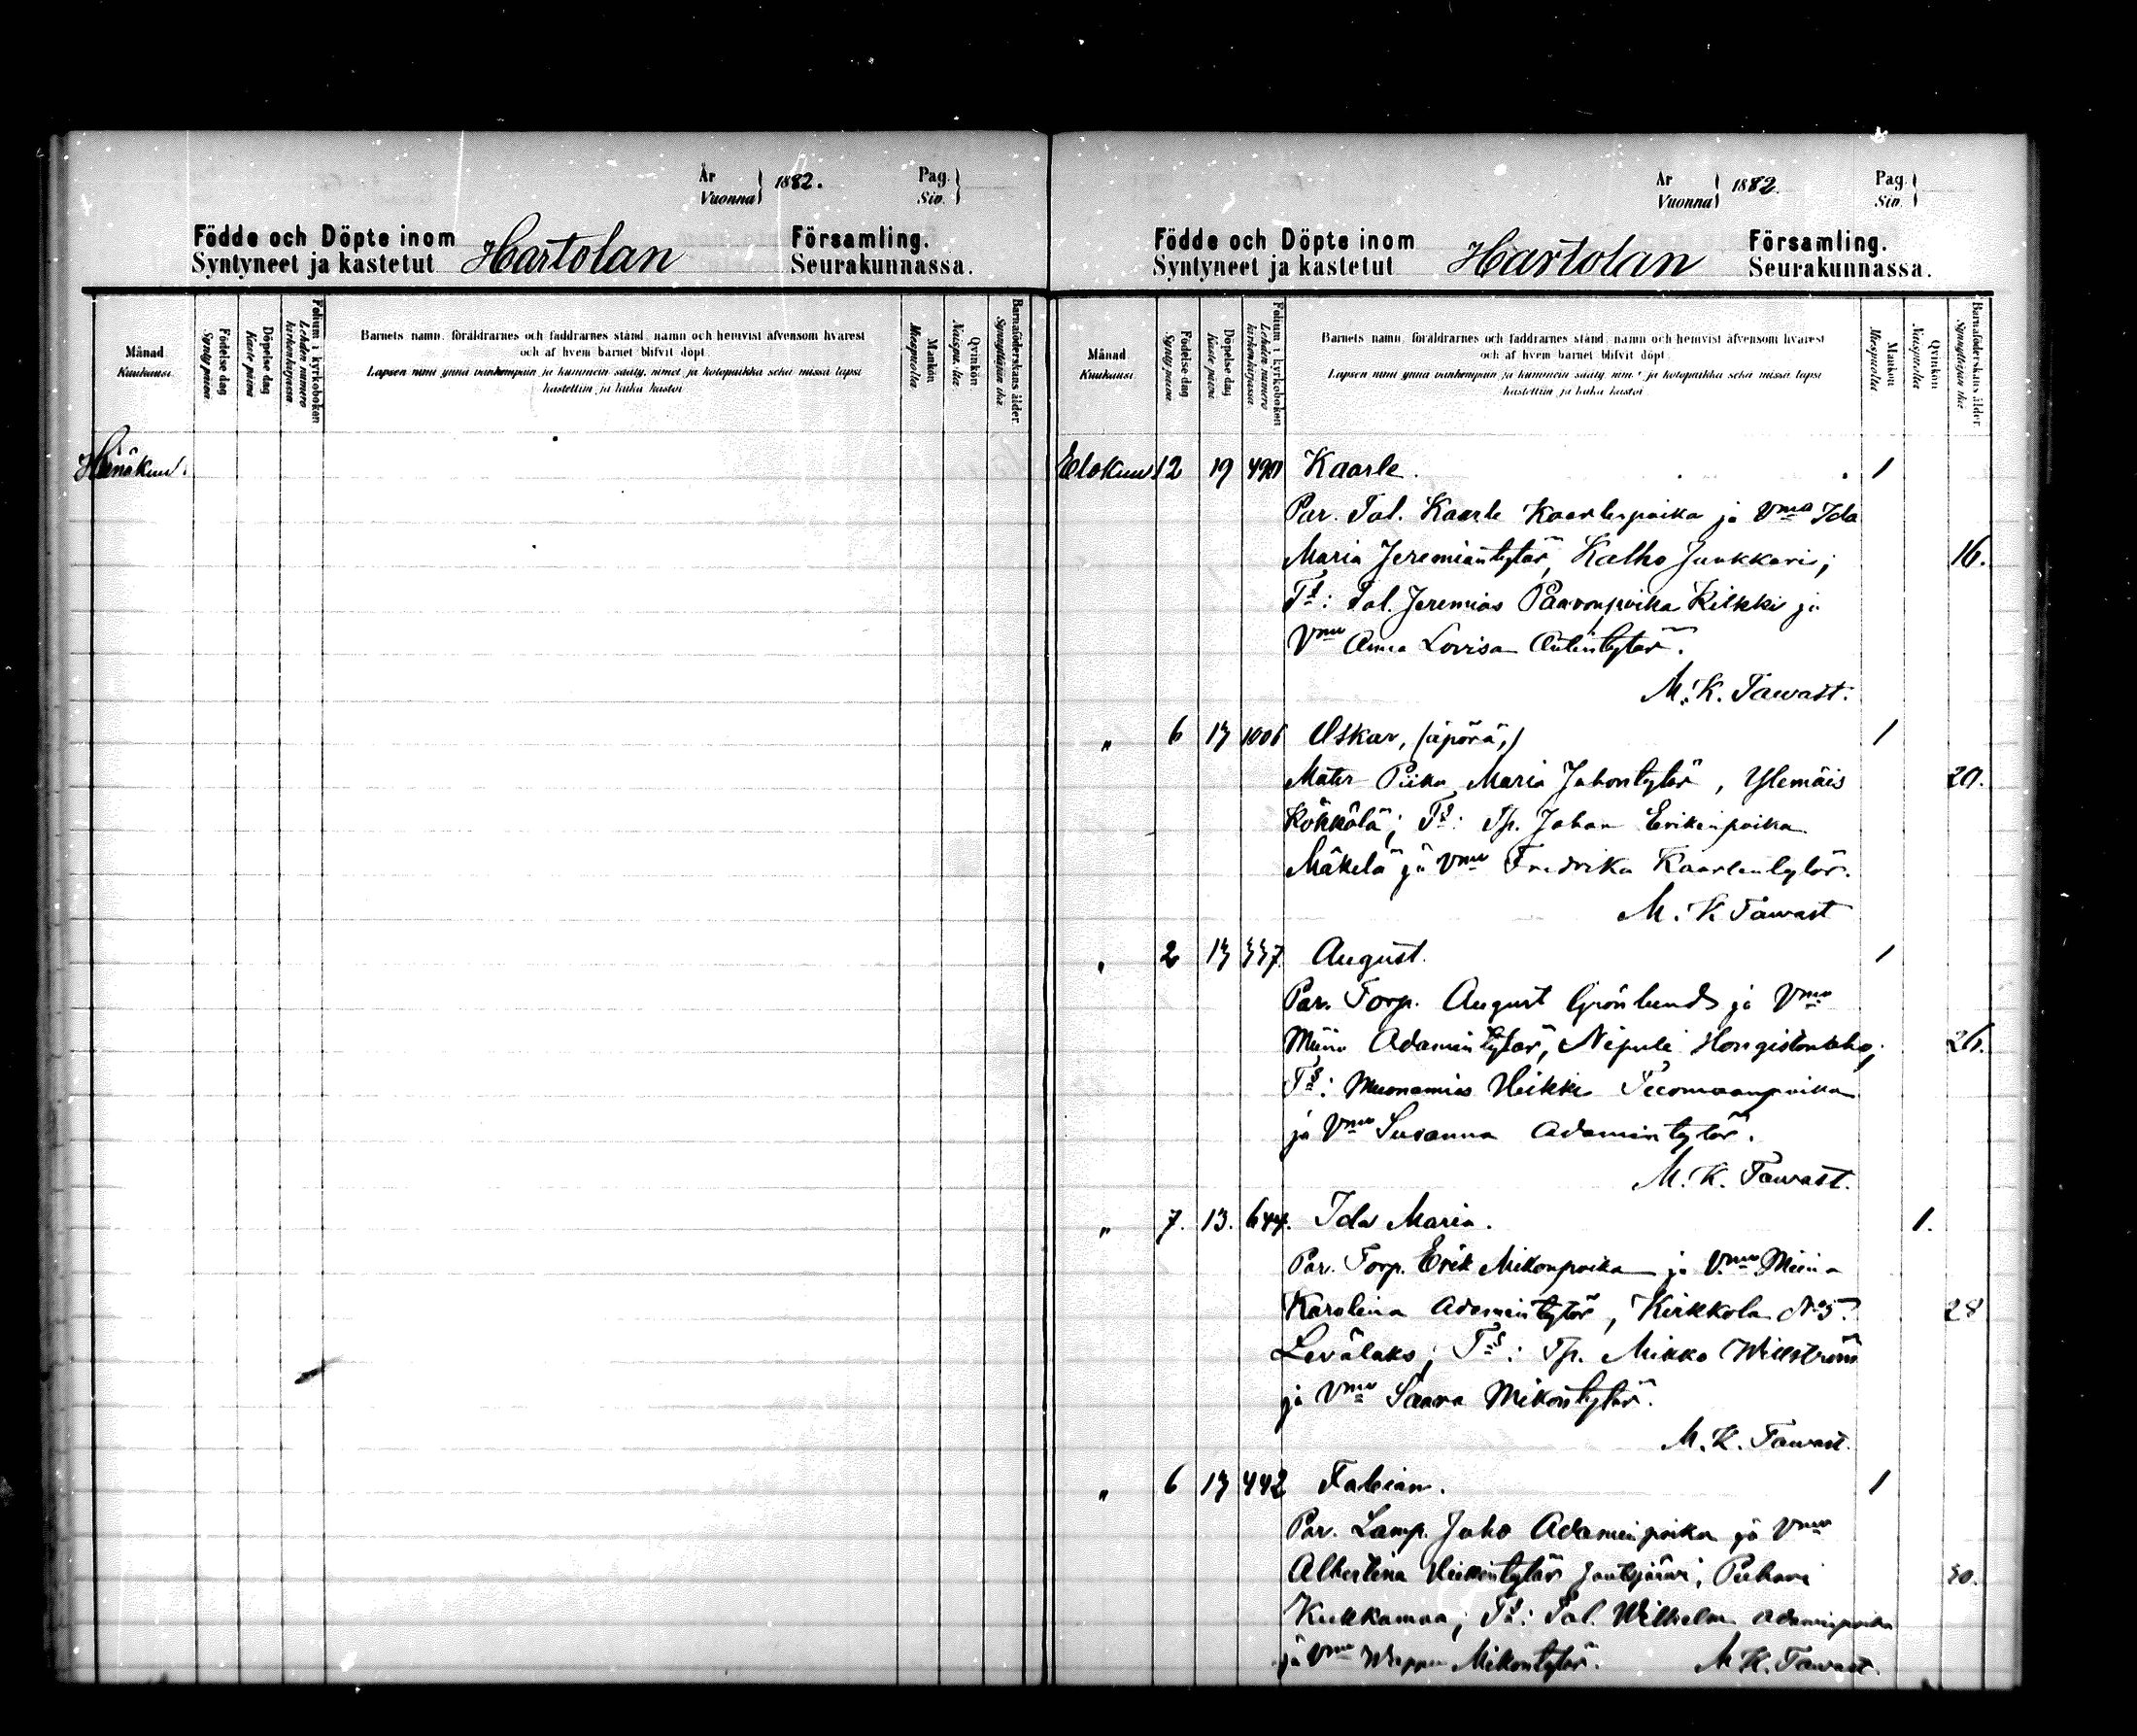 År
Vuonna } 1882.
Pag.
Siv. }
Födde och Döpte inom
Syntyneet ja kastetut
Hartolan
Församling.
Seurakunnassa.
Månad.
Kuukausi.
Födelse dag
Synty päivä
Döpelse dag
Kaste päivä
Folium i kyrkoboken
Lehden numero kirkonkirjassa
Barnets namn, föräldrarnes och faddrarnes stånd, namn och hemvist äfvensom hvarest
och af hvem barnet blifvit döpt.
Lapsen nimi ynnä vanhempain ja kummein sääty, nimet ja kotopaikka sekä missä lapsi
kastettiin ja kuka kastoi
Mankön
Miespuolta
Qvinkön
Naispuolta
Barnaföderskans ålder
Synnyttäjän ikä
Heinäkuu.
År
Vuonna } 1882.
Pag.
Siv. }
Födde och Döpte inom
Syntyneet ja kastetut
Hartolan
Församling.
Seurakunnassa.
Månad.
Kuukausi.
Födelse dag
Synty päivä
Döpelse dag
Kaste päivä
Folium i kyrkoboken
Lehden numero kirkonkirjassa
Barnets namn, föräldrarnes och faddrarnes stånd, namn och hemvist äfvensom hvarest
och af hvem barnet blifvit döpt
Lapsen nimi ynnä vanhempain ja kummein sääty, nimet ja kotopaikka sekä missä lapsi
kastettiin ja kuka kastoi
Mankön
Miespuolta
Qvinkön
Naispuolta
Barnaföderskans ålder
Synnyttäjän ikä
Elokuu 12 19 Kaarle. 1
Par. Tal. Kaarle Kaarlenpoika ja Vmo Ida
Maria Jeremiäntytär, Kalho Junkkari; 16.
Ts: Tal. Jeremias Paavonpoika Kilkki ja
Vmo Anna Lovisa Antintytär.
M. K. Tawast.
" 6 13 1006 Oskar, (äpärä,) 1
Mater Piika Maria Juhontytär, Ylemäis
Kökkölä; Ts: Tp. Johan Erikinpoika
Mäkelä ja Vmo Fredrika Kaarlentytär.
M. K. Tawast
" 2 13 337. August. 1
Par. Torp. August Grönlund ja Vmo
Miina Adamintytär, Nipuli Hongistonaho; 26.
Ts: Muonamies Heikki Tuomaanpoika
ja Vmo Susanna Adamintytär.
M. K. Tawast.
" 7. 13. 644. Ida Maria. 1.
Par. Torp. Erik Mikonpoika ja Vmo Miina
Karolina Adamintytär, Kirkkola No 5. 28
Levälaks; Ts: Tp. Mikko Willström
ja Vmo Saara Mikontytär.
M. K. Tawast.
" 6 13 442 Fabian. 1
Par. Lamp. Juho Adaminpoika ja Vmo
Albertina Heikintytär Joutsjärvi, Puhari 30.
Kukkamaa; Ts: Tal. Wilhelm Adaminpoika
ja Vmo Wappu Mikontytär. M. K. Tawast.